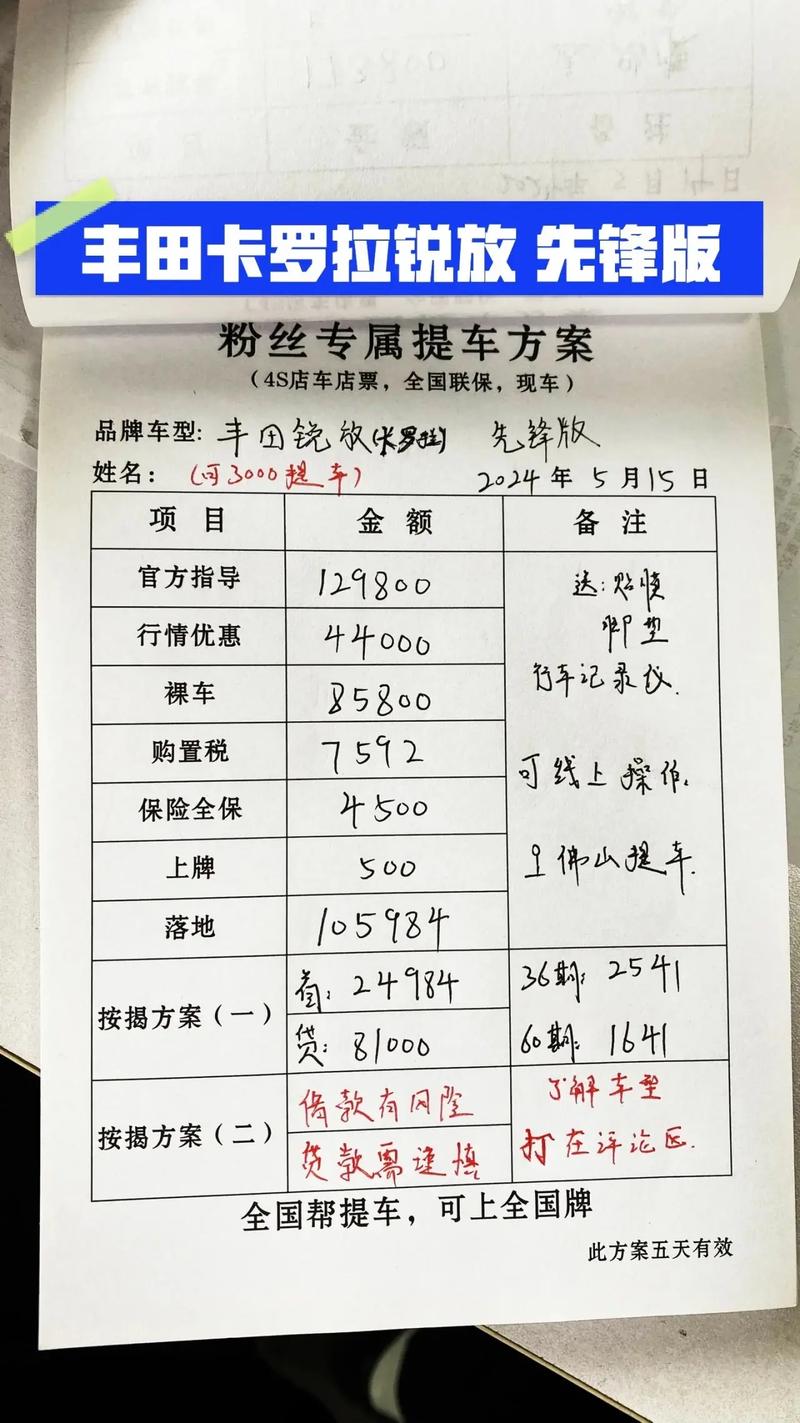 丰田卡罗拉锐放 先锋版
粉丝专属提车方案
（4S店车店票，全国联保，现车）
品牌车型: 丰田锐放(卡罗拉) 先锋版
姓名: (可3000提车) 2024年5月15日
项目 金额 备注
官方指导 129800 送:贴膜
行情优惠 44000 脚垫
裸车 85800 行车记录仪.
购置税 7592 可线上操作.
保险全保 4500
上牌 500 佛山提车.
落地 105984
按揭方案（一） 首: 24984 36期: 2541
贷: 81000 60期: 1641
按揭方案（二） 借款有风险 了解车型
贷款需谨慎 打在评论区.
全国帮提车，可上全国牌
此方案五天有效